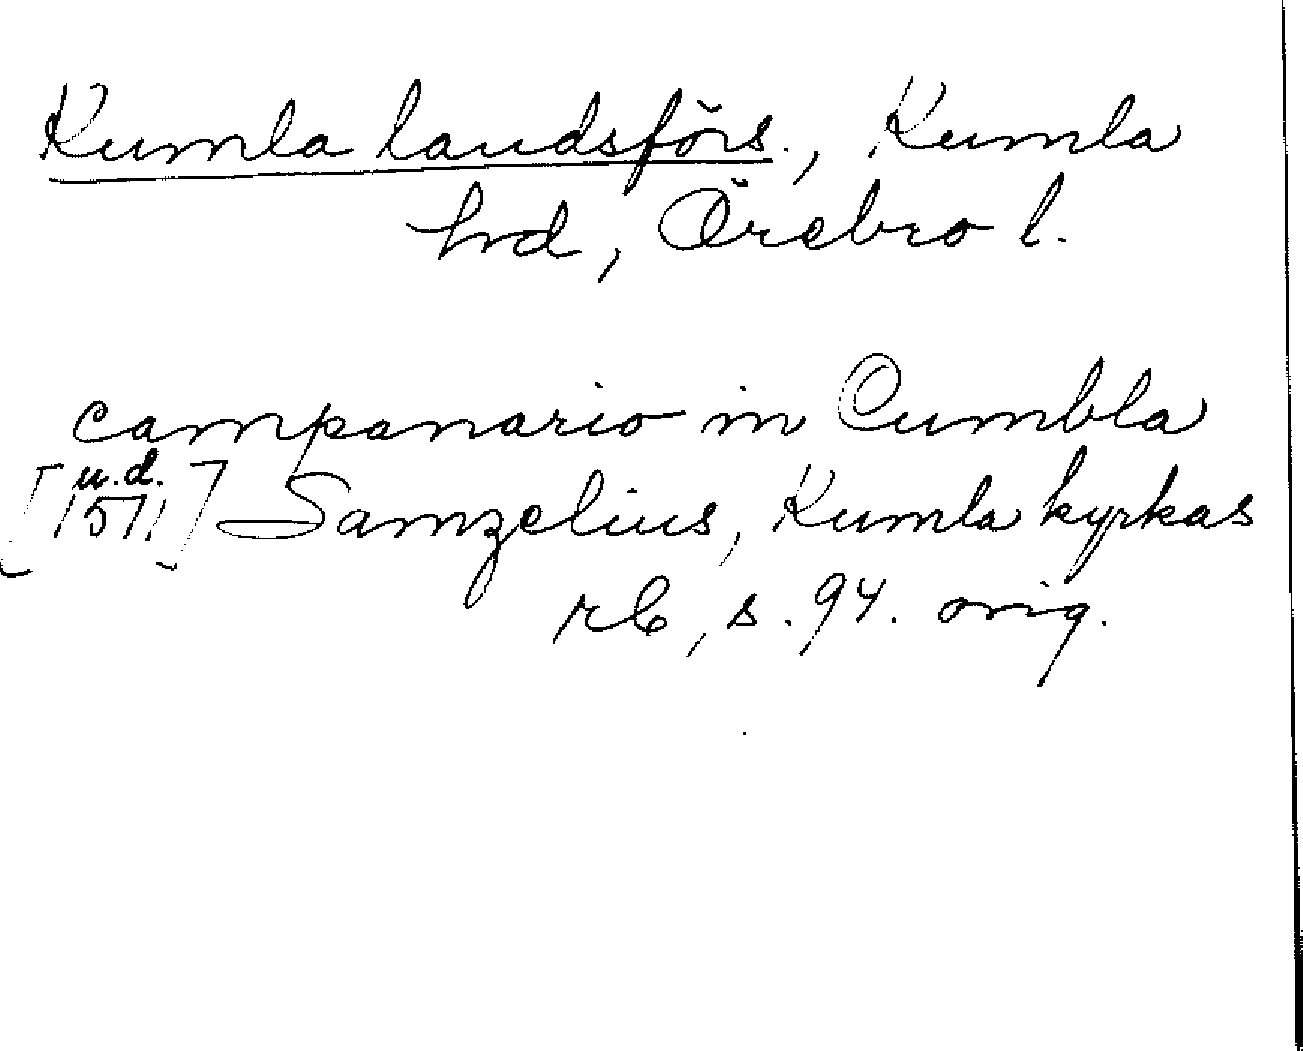 Kumla landsförs., Kumla
hrd, Örebro l.
campanario in Cumbla
[u.d. 1571] Samzelius, Kumla kyrkas
rb, s. 94. orig.